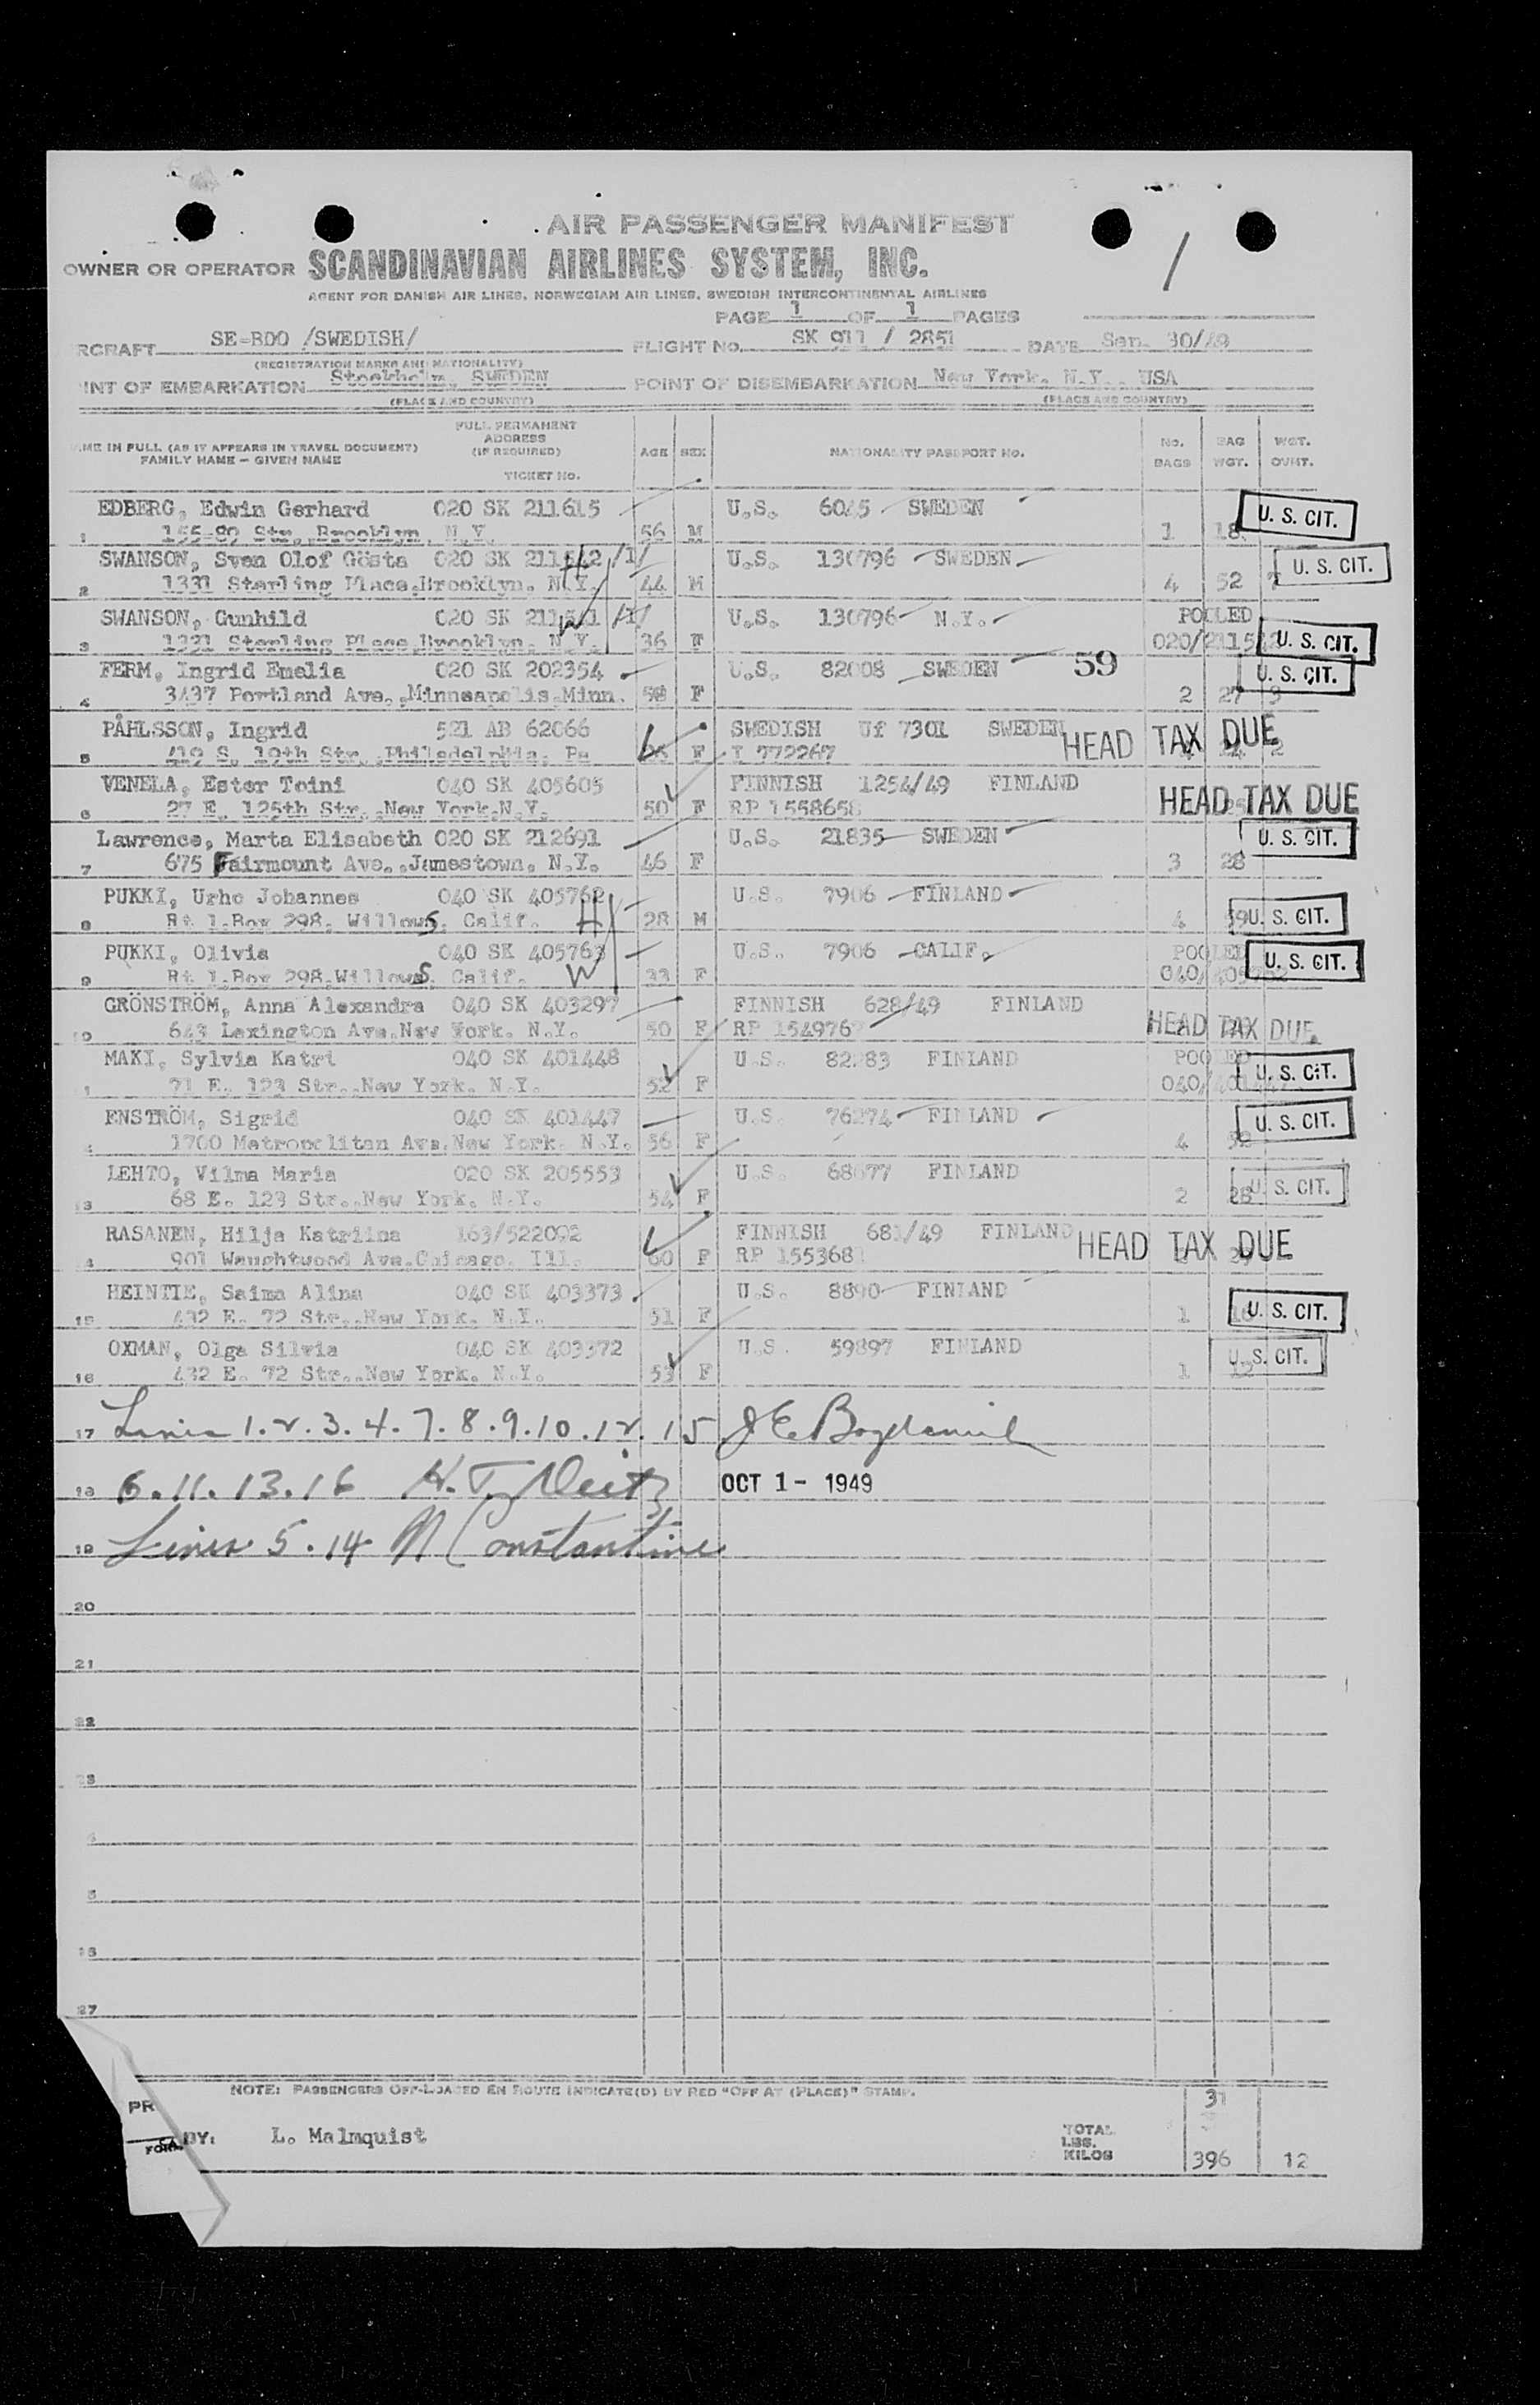 AIR PASSENGER MANIFEST
OWNER OR OPERATOR SCANDINAVIAN AIRLINES SYSTEM, INC.
AGENT FOR DANISH AIR LINES, NORWEGIAN AIR LINES, SWEDISH INTERCONTINENTAL AIRLINES
PAGE 1 OF 1 PAGES
RCRAFT SE-BDO /SWEDISH/ FLIGHT NO. SK 911 / 2851 DATE Sep. 30/49
(REGISTRATION MARKS AND NATIONALITY)
INT OF EMBARKATION Stockholm, SWEDEN POINT OF DISEMBARKATION New York, N.Y., USA
(PLACE AND COUNTRY) (PLACE AND COUNTRY)
AME IN FULL (AS IT APPEARS IN TRAVEL DOCUMENT) FAMILY NAME – GIVEN NAME FULL PERMANENT ADDRESS (IF REQUIRED) TICKET NO. AGE SEX NATIONALITY PASSPORT NO. NO. BAGS BAG WGT. WGT. OVHT.
EDBERG, Edwin Gerhard 020 SK 211615 U.S. 6045 SWEDEN U. S. CIT.
1 155-89 Str, Brooklyn, N.Y. 56 M 1 18
SWANSON, Sven Olof Gösta 020 SK 211542 /1/ U.S. 130796 SWEDEN U. S. CIT.
2 1331 Sterling Place,Brooklyn, N.Y. H 44 M 4 52 7
SWANSON, Gunhild 020 SK 211541 /1/ U.S. 130796 N.Y. POOLED
3 1331 Sterling Place,Brooklyn, N.Y. W 36 F 020/211542 U. S. CIT.
FERM, Ingrid Emelia 020 SK 202354 U.S. 82008 SWEDEN 59 U. S. CIT.
4 3437 Portland Ave.,Minneapolis,Minn. 58 F 2 27 3
PÅHLSSON, Ingrid 521 AB 62066 SWEDISH Uf 7301 SWEDEN HEAD TAX DUE
5 419 S. 19th Str.,Philadelphia, Pa F I 772267 2
VENELA, Ester Toini 040 SK 405605 FINNISH 1254/49 FINLAND HEAD TAX DUE
6 27 E. 125th Str.,New York,N.Y. 50 F RP 1558658
Lawrence, Marta Elisabeth 020 SK 212691 U.S. 21835 SWEDEN U. S. CIT.
7 675 Fairmount Ave.,Jamestown, N.Y. 46 F 3 28
PUKKI, Urho Johannes 040 SK 405762 U.S. 7906 FINLAND
8 Rt 1.Box 298, Willows, Calif. H 28 M 4 59 U. S. CIT.
PUKKI, Olivia 040 SK 405763 U.S. 7906 CALIF. POOLED U. S. CIT.
9 Rt 1.Box 298,Willows, Calif. W 33 F 040/405762
GRÖNSTRÖM, Anna Alexandra 040 SK 403297 FINNISH 628/49 FINLAND
10 643 Lexington Ave.New York, N.Y. 50 F RP 1549767 HEAD TAX DUE
MAKI, Sylvia Katri 040 SK 401448 U.S. 82283 FINLAND POOLED U. S. CIT.
1 71 E. 123 Str.,New York, N.Y. 52 F 040/401447
ENSTRÖM, Sigrid 040 SK 401447 U.S. 76274 FINLAND U. S. CIT.
1700 Metropolitan Ave.New York, N.Y. 56 F 4
LEHTO, Vilma Maria 020 SK 205553 U.S. 68077 FINLAND U. S. CIT.
13 68 E. 123 Str.,New York, N.Y. 54 F 2 28
RASANEN, Hilja Katriina 163/522092 FINNISH 681/49 FINLAND HEAD TAX DUE
4 901 Waughtwood Ave.Chicago Ill. 60 F RP 1553681
HEINTIE, Saima Alina 040 SK 403373 U.S. 8890 FINLAND
15 432 E. 72 Str.,New York, N.Y. 51 F 1 U. S. CIT.
OXMAN, Olga Silvia 040 SK 403372 U.S. 59897 FINLAND U. S. CIT.
16 432 E. 72 Str.,New York, N.Y. 53 F 1 12
17 Lines 1.2.3.4.7.8.9.10.12.15
18 6.11.13.16 H.T. Deitz OCT 1- 1949
19 Lines 5.14 N Constantine
20
21
22
23
27
NOTE: PASSENGERS OFF-LOADED EN ROUTE INDICATE(D) BY RED "OFF AT (PLACE)" STAMP.
PR 31
FORM BY: L. Malmquist TOTAL LBS. KILOS 396 12